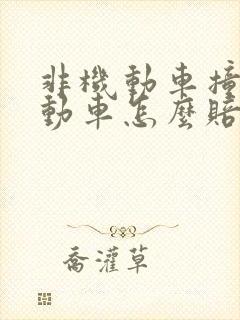 非機動車撞
動車怎麼賠
喬灌草